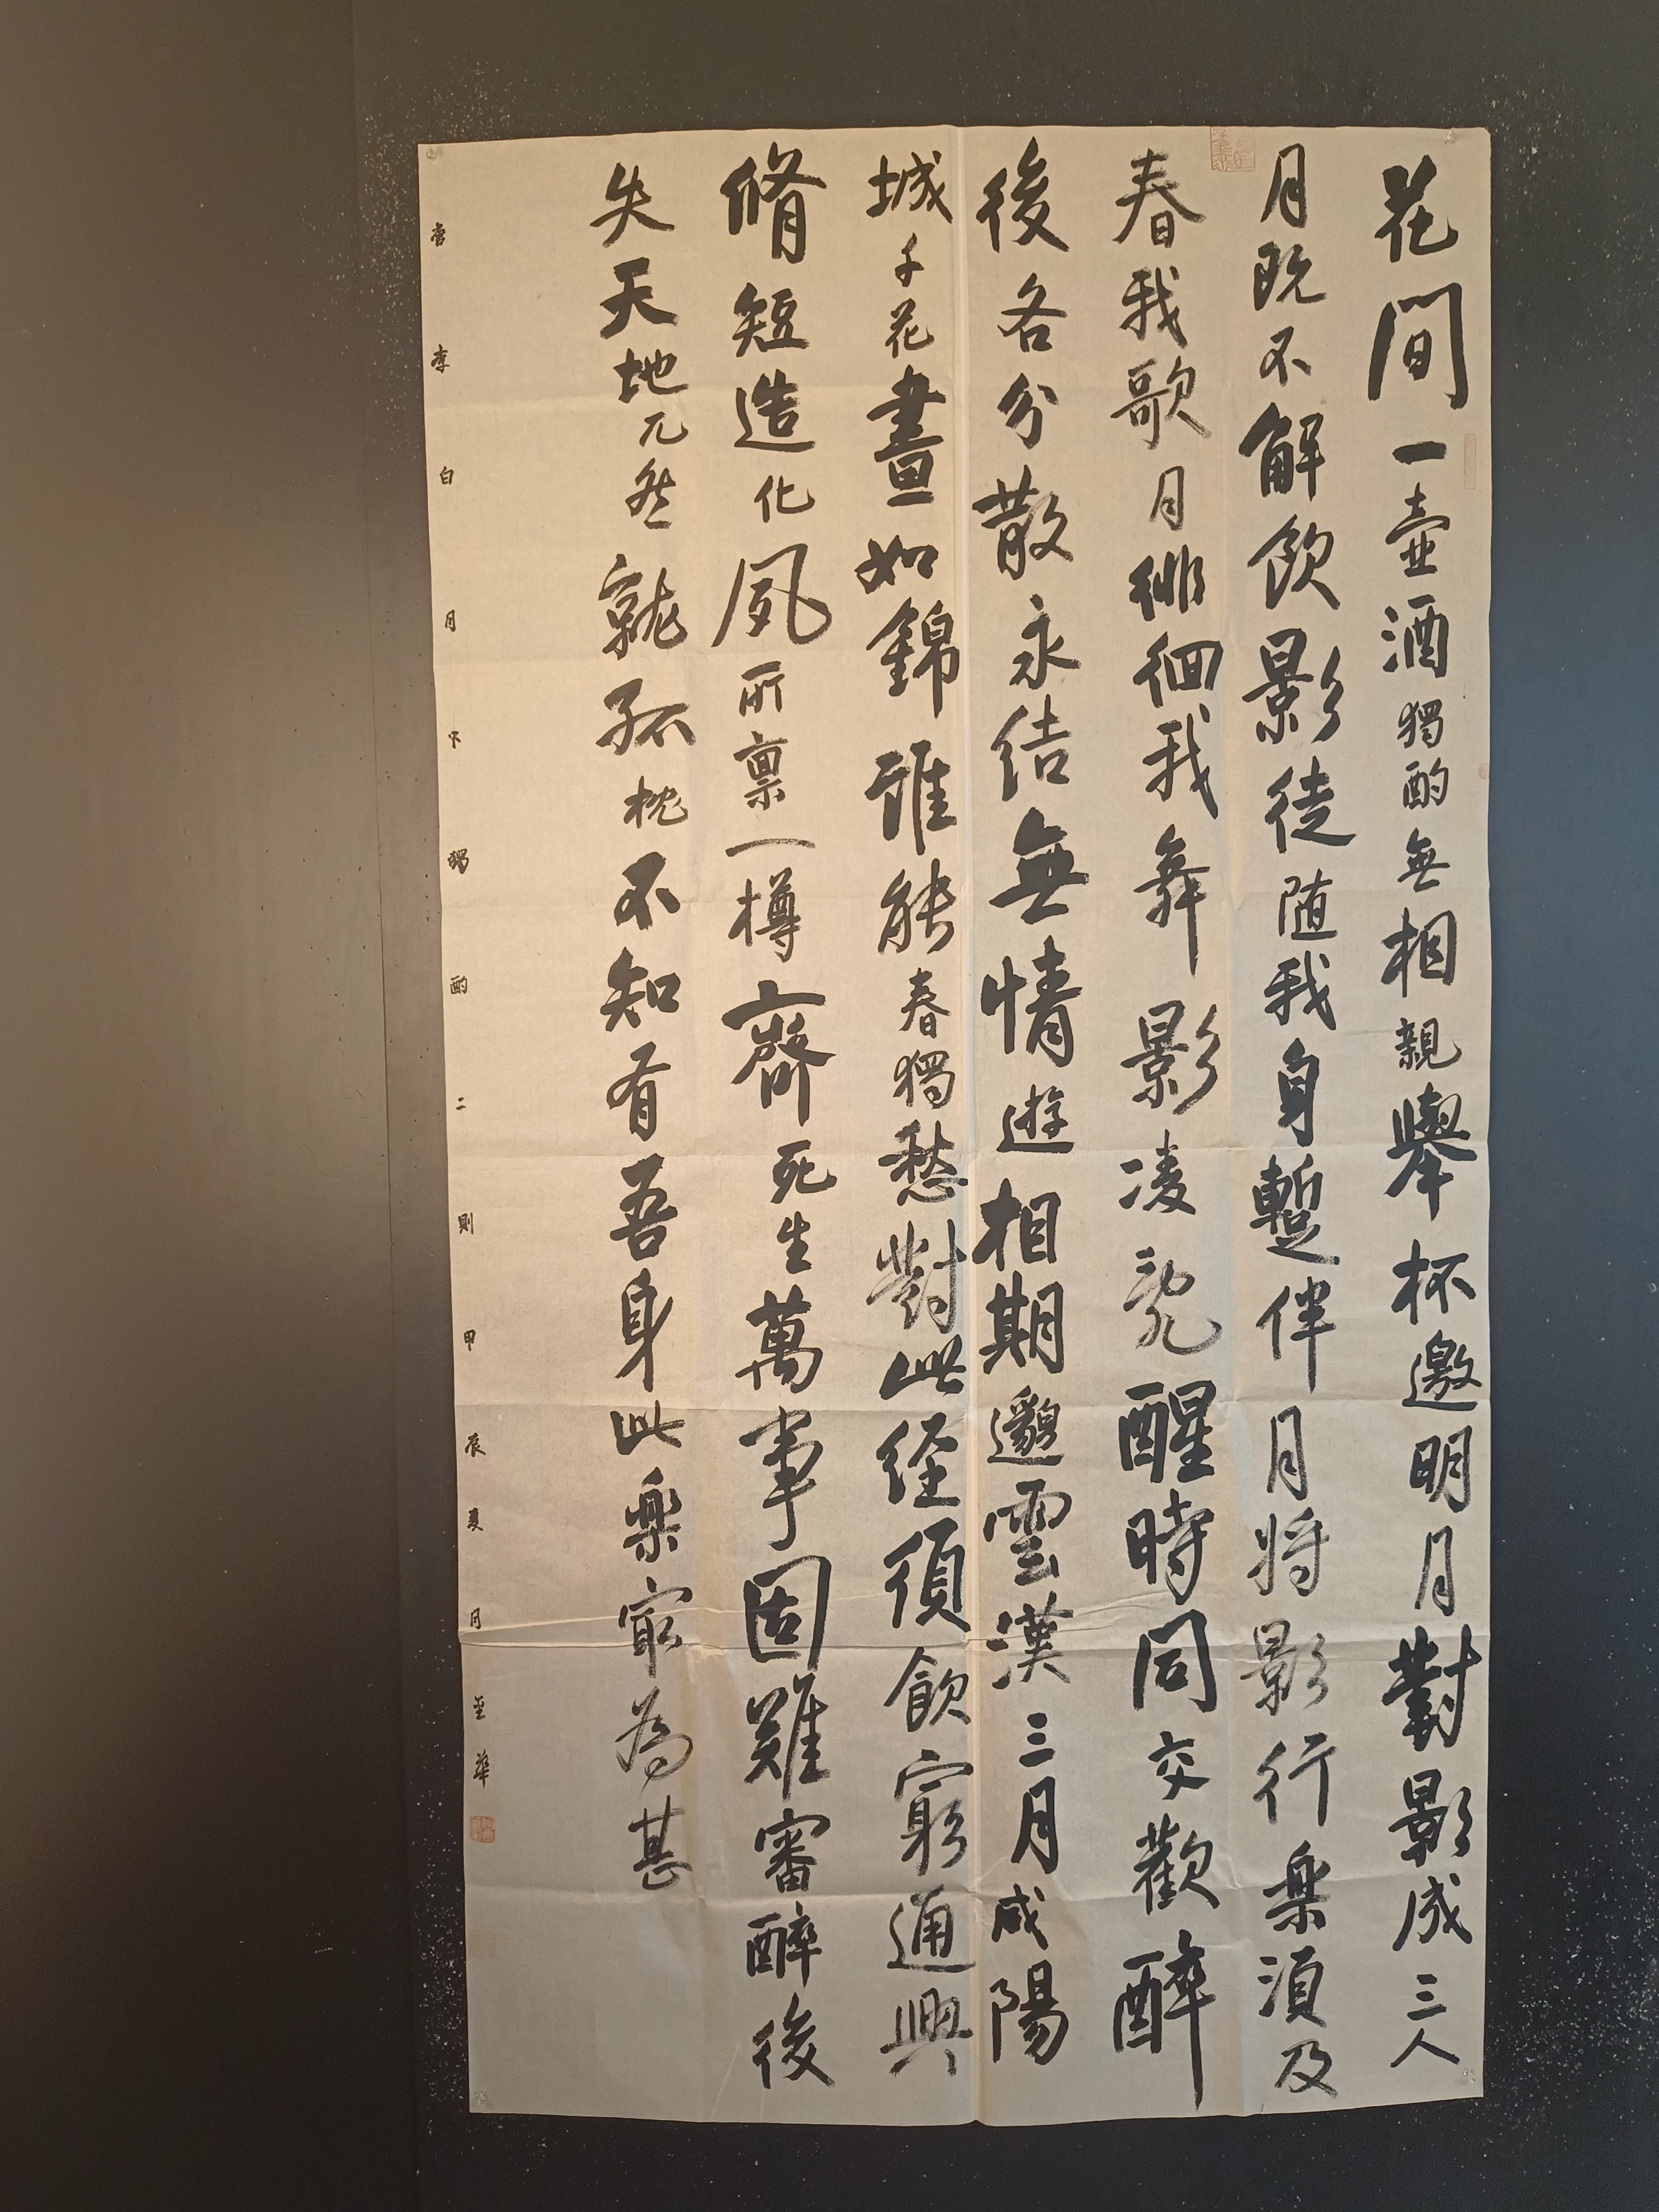 花間一壺酒獨酌無相親舉杯邀明月對影成三人
月既不解飲影徒隨我身暫伴月將影行樂須及
春我歌月徘徊我舞影凌亂醒時同交歡醉
後各分散永結無情遊相期邈雲漢三月咸陽
城千花晝如錦誰能春獨愁對此經須飲窮通與
脩短造化夙所稟一樽齊死生萬事固難審醉後
失天地兀然就孤枕不知有吾身此樂最為甚
唐李白月下獨酌二則甲辰夏月至華